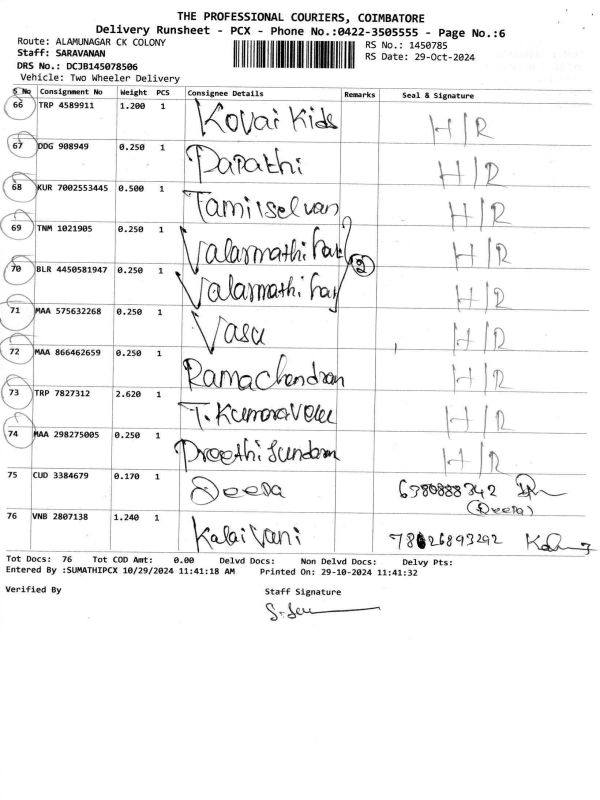 THE PROFESSIONAL COURIERS, COIMBATORE
Delivery Runsheet - PCX - Phone No.:0422-3505555 - Page No.:6
Route: ALAMUNAGAR CK COLONY RS No.: 1450785
Staff: SARAVANAN RS Date: 29-Oct-2024
DRS No.: DCJB145078506
Vehicle: Two Wheeler Delivery
S No Consignment No Weight PCS Consignee Details Remarks Seal & Signature
66 TRP 4589911 1.200 1 Kovai Kids H/R
67 DDG 908949 0.250 1 Papathi H/R
68 KUR 7002553445 0.500 1 Tamilselvan H/R
69 TNM 1021905 0.250 1 Valarmathi H/R
2
70 BLR 4450581947 0.250 1 Valarmathi H/R
71 MAA 575632268 0.250 1 Vasu H/R
72 MAA 866462659 0.250 1 Ramachandran H/R
73 TRP 7827312 2.620 1 T. Kumaravelu H/R
74 MAA 298275005 0.250 1 Preethi Sundaram H/R
75 CUD 3384679 0.170 1 Deepa 6380888342
(Deepa)
76 VNB 2807138 1.240 1 Kalaivani
Tot Docs: 76 Tot COD Amt: 0.00 Delvd Docs: Non Delvd Docs: Delvy Pts:
Entered By :SUMATHIPCX 10/29/2024 11:41:18 AM Printed On: 29-10-2024 11:41:32
Verified By Staff Signature